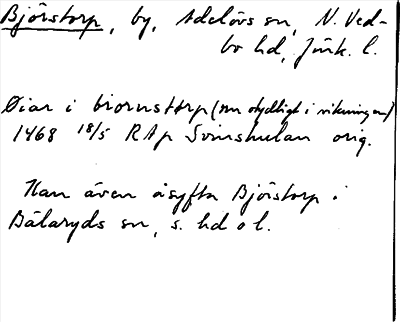 Björstorp, by, Adelövs sn, N. Ved-
bo hd, Jönk. l.
Öiar i biornstorp (nu otydligt i vikningen)
1468 18/5 RAp Svinshulan orig.
Kan även åsyfta Björstorp i
Bälaryds sn, s. hd o l.